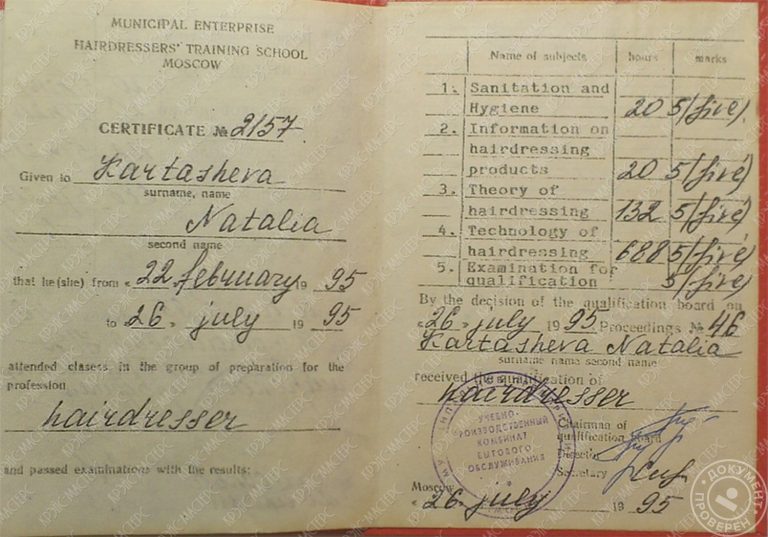 MUNICIPAL ENTERPRISE
HAIRDRESSERS' TRAINING SCHOOL
MOSCOW
CERTIFICATE № 2157
Given to Kartasheva
surname, name
Natalia
second name
that he (she) from « 22 » february 19 95
to « 26 » july 19 95
attended classes in the group of preparation for the
profession
hairdresser
and passed examinations with the results:
Name of subjects hours marks
1. Sanitation and
Hygiene 20 5 (five)
2. Information on
hairdressing
products 20 5 (five)
3. Theory of
hairdressing 132 5 (five)
4. Technology of
hairdressing 688 5 (five)
5. Examination for
qualification 5 (five)
By the decision of the qualification board on
« 26 » july 1995 Proceedings № 46
Kartasheva Natalia
surname name second name
received the qualification of
hairdresser
Chairman of
qualification board
Director
Secretary
Moscow
« 26 » july 19 95
УЧЕБНО-
ПРОИЗВОДСТВЕННЫЙ
КОМБИНАТ
БЫТОВОГО
ОБСЛУЖИВАНИЯ
ДОКУМЕНТ
ПРОВЕРЕН